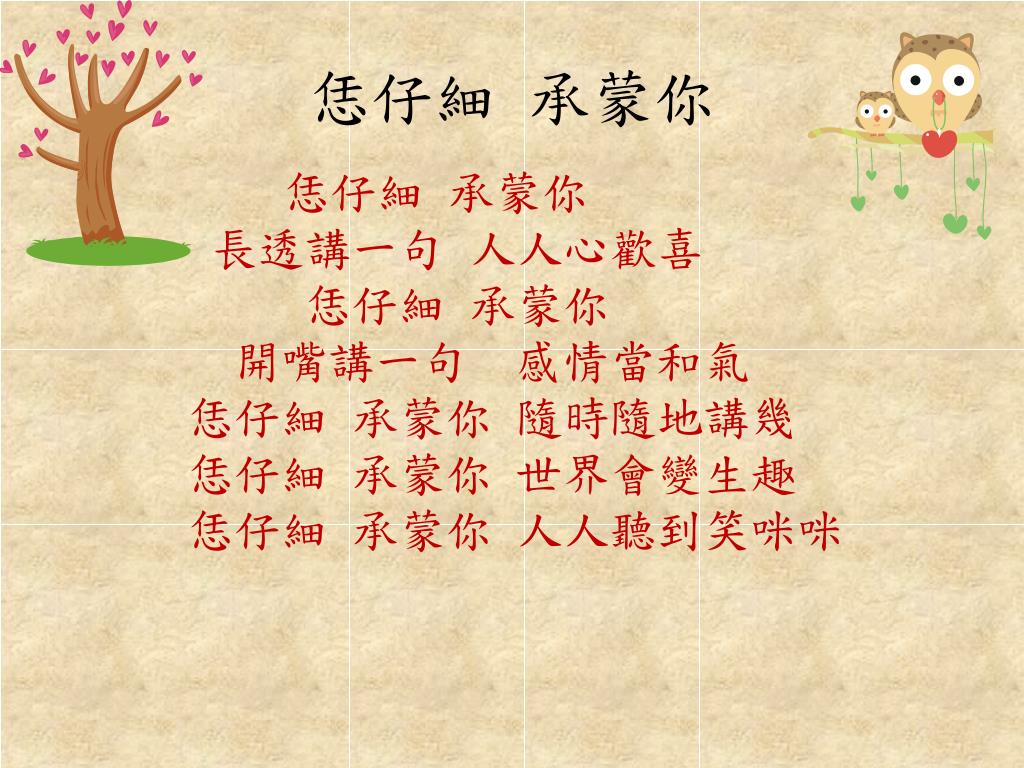 恁仔細 承蒙你
恁仔細 承蒙你
長透講一句 人人心歡喜
恁仔細 承蒙你
開嘴講一句 感情當和氣
恁仔細 承蒙你 隨時隨地講幾
恁仔細 承蒙你 世界會變生趣
恁仔細 承蒙你 人人聽到笑咪咪